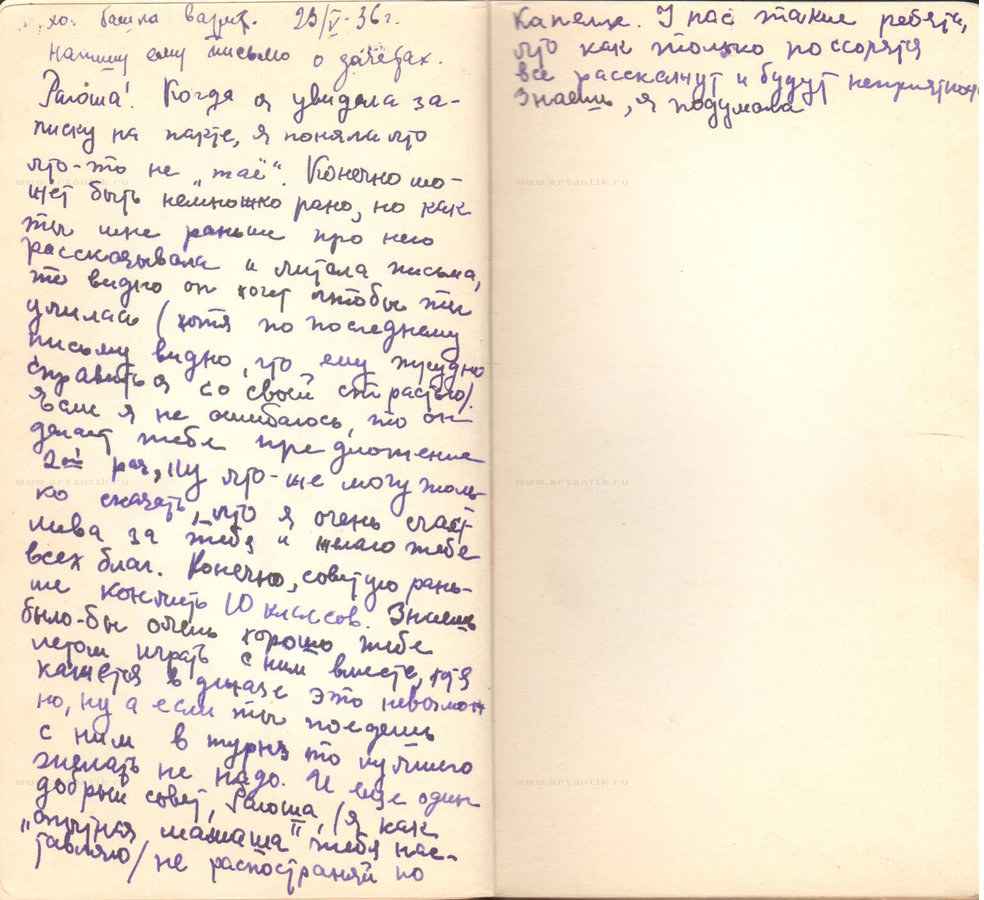 хо. башка варит. 23/V-36 г.
напишу ему письмо о зачетах.
Раюша! Когда я увидела за-
писку на парте, я поняла что
что-то не „таё“. Конечно мо-
жет быть немножко рано, но как
ты мне раньше про него
рассказывала и читала письма,
то видно он хочет чтобы ты
училась (хотя по последнему
письму видно, что ему трудно
справиться со своей страстью).
Если я не ошибаюсь, то он
делает тебе предложение
2ой раз, ну что-же могу толь-
ко сказать, что я очень счаст
лива за тебя и желаю тебе
всех благ. Конечно, советую рань-
ше кончить 10 классов. Знаешь
было-бы очень хорошо тебе
летом играть с ним вместе, хотя
кажется в джазе это невозмож
но, ну а если ты поедешь
с ним в турнэ то лучшего
желать не надо. И еще один
добрый совет, Раюша, (я как
„опытная мамаша“ тебя нас-
тавляю) не распостраняй по
Капелле. У нас такие ребята,
что как только поссорятся
все расскажут и будут неприятнос
Знаешь, я подумала
www.artantik.ru
www.artantik.ru
www.artantik.ru
www.artantik.ru
www.artantik.ru
www.artantik.ru